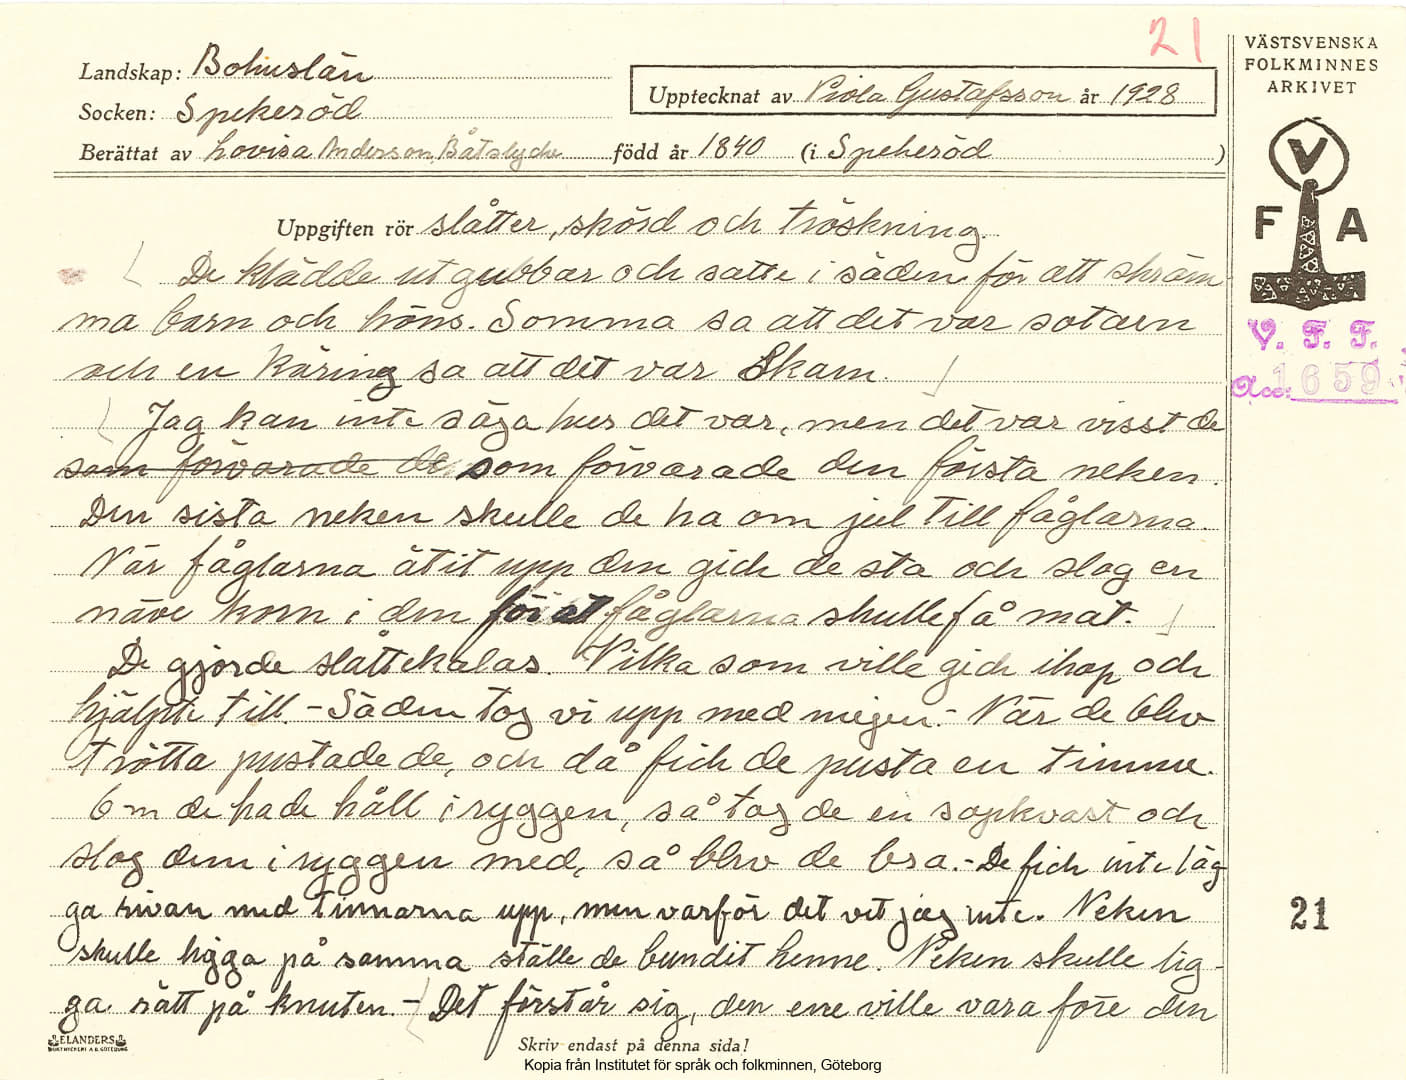 21
Landskap: Bohuslän
Socken: Spekeröd
Upptecknat av Viola Gustafsson år 1928
Berättat av Lovisa Anderson, Båtslycke född år 1840 (i Spekeröd )
VÄSTSVENSKA
FOLKMINNES
ARKIVET
V
F A
V. F. F.
Acc: 1659
Uppgiften rör slåtter, skörd och tröskning.
De klädde ut gubbar och satte i säden för att skräm-
ma barn och höns. Somma sa att det var sotarn
och en käring sa att det var Skam.
Jag kan inte säga hur det var, men det var visst de
som förvarade de som förvarade den första neken.
Den sista neken skulle de ha om jul till fåglarna.
När fåglarna ätit upp den gick de sta och slog en
näve korn i den för at fåglarna skulle få mat.
De gjorde slåttekalas. Vilka som ville gick ihop och
hjälpte till. - Säden tog vi upp med megen. - När de blev
trötta pustade de, och då fick de pusta en timme.
Om de hade håll i ryggen, så tog de en sopkvast och
slog dem i ryggen med, så blev de bra. - De fick inte läg
ga rivan med tinnarna upp, men varför det vet jag inte. Neken
skulle ligga på samma ställe de bundit henne. Neken skulle lig-
ga rätt på knuten. - Det förstår sig, den ene ville vara före den
21
ELANDERS
BOKTRYCKERI A.B. GÖTEBORG
Skriv endast på denna sida!
Kopia från Institutet för språk och folkminnen, Göteborg